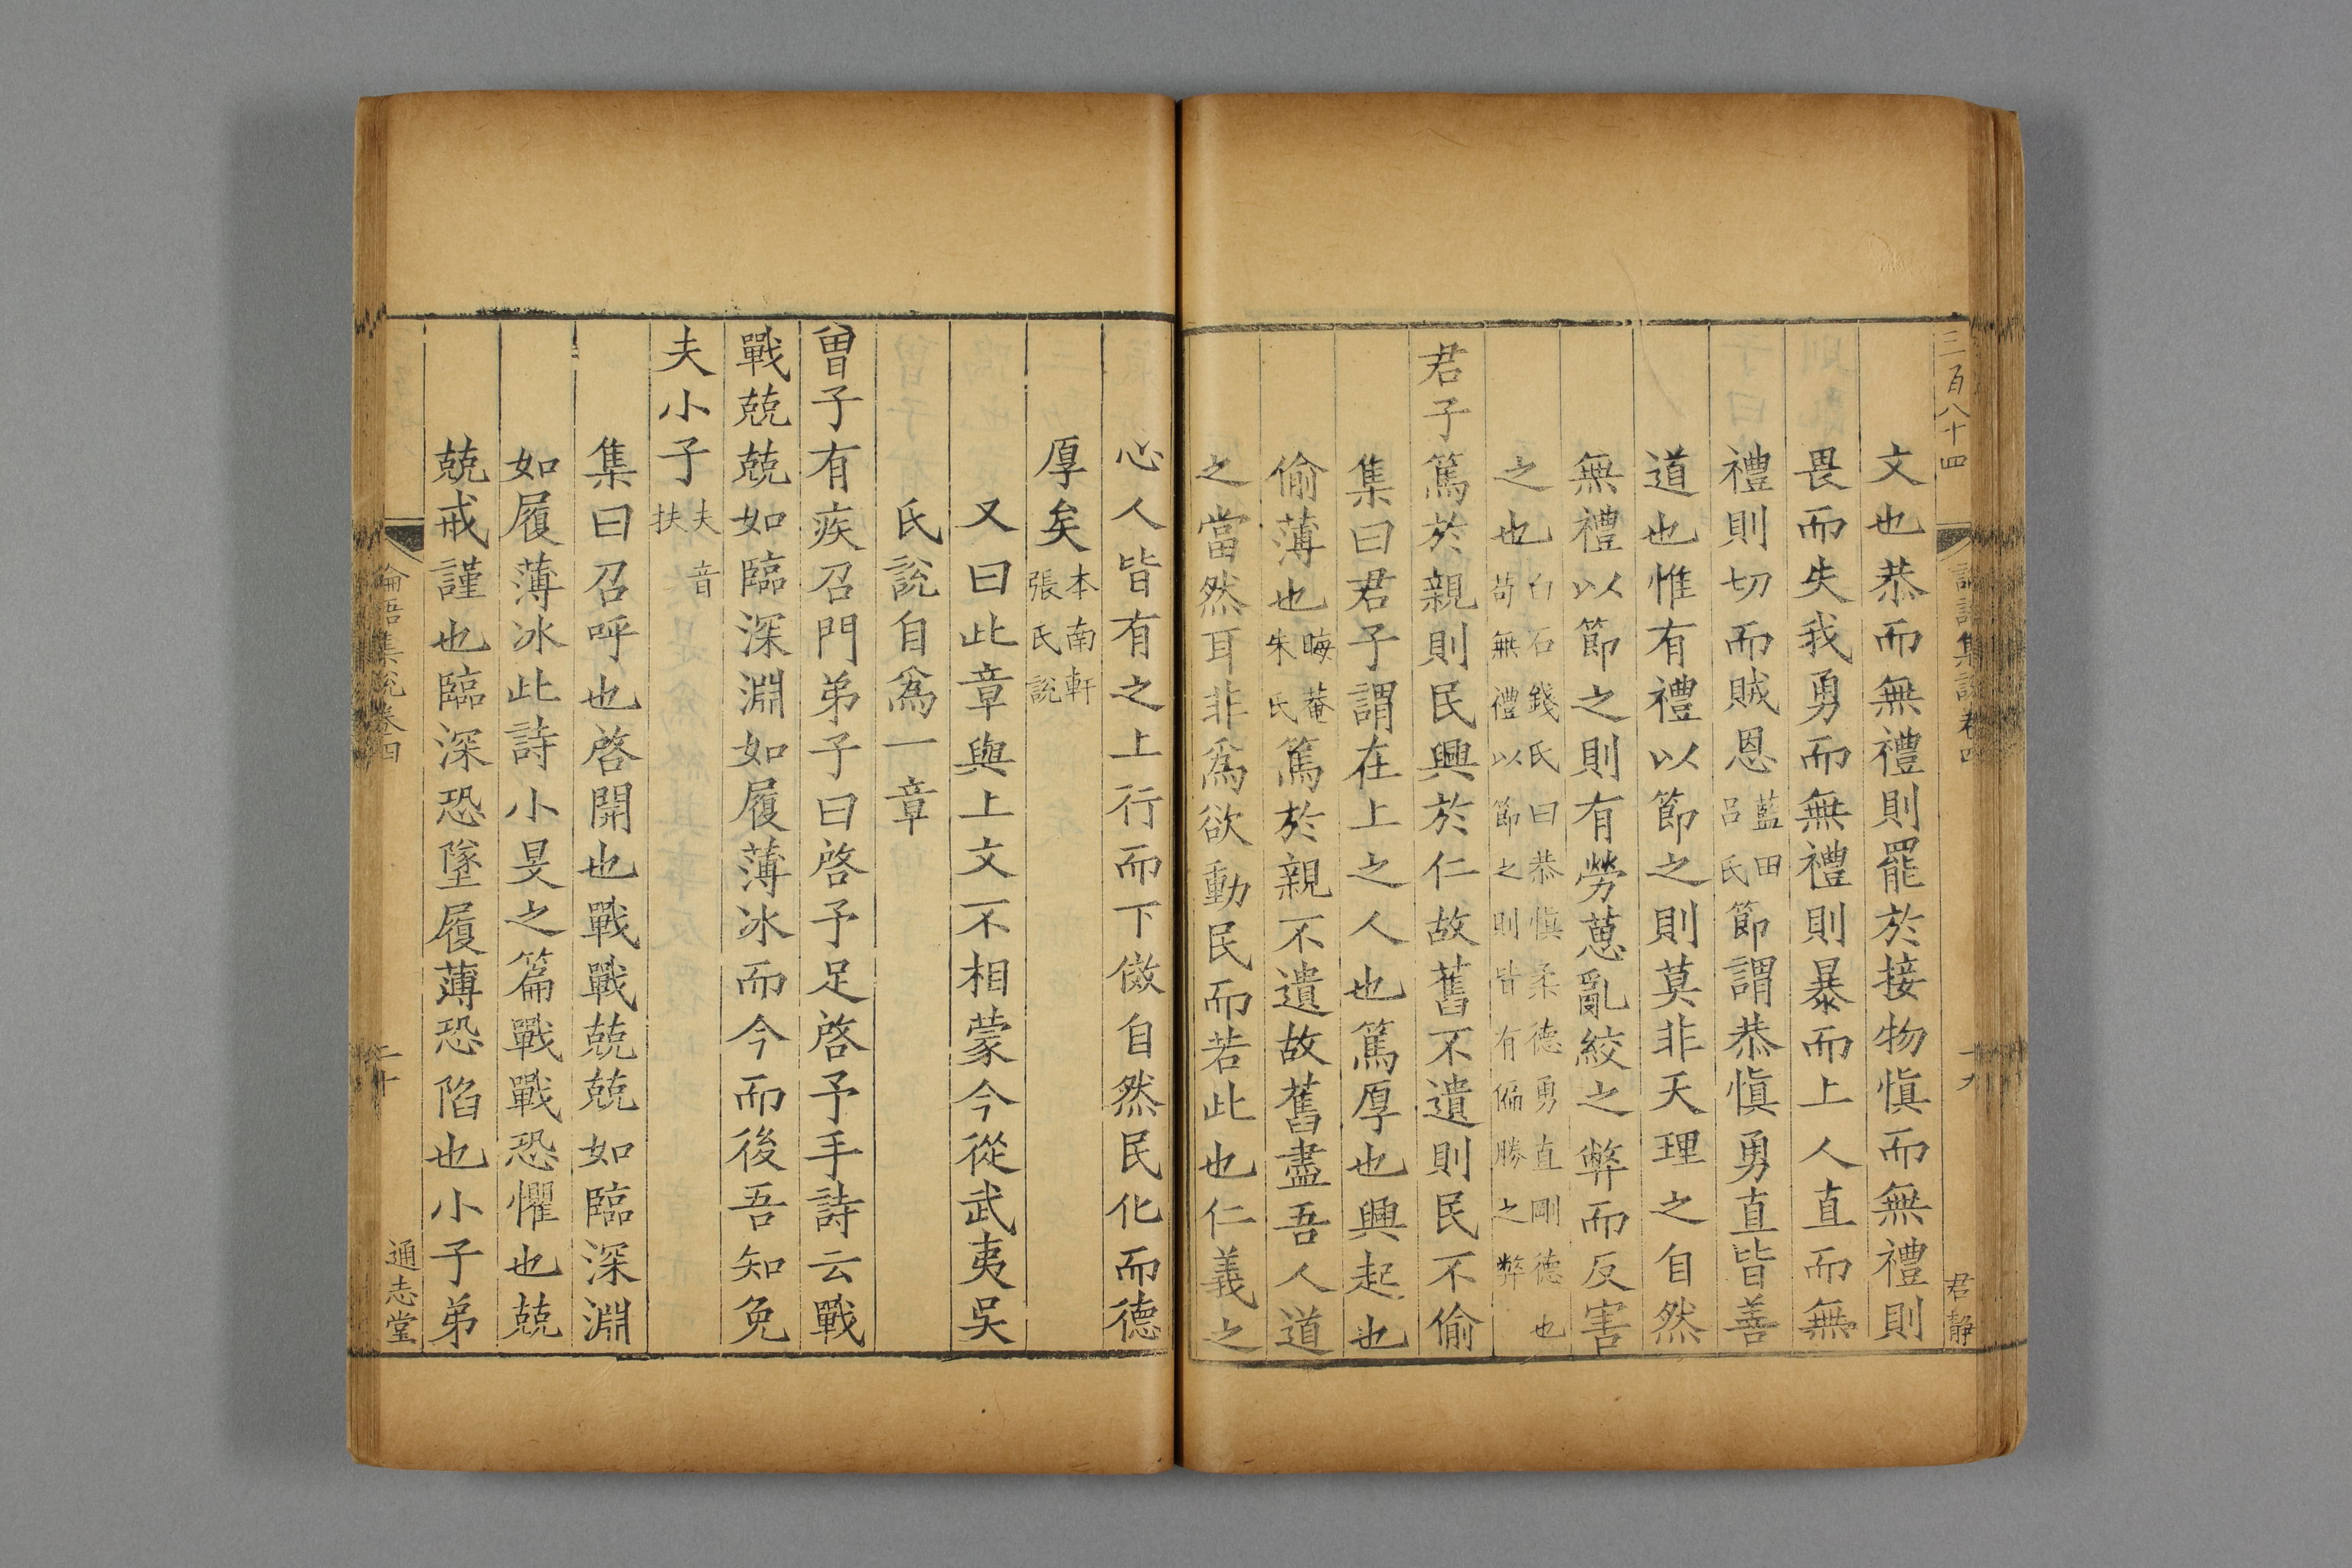 三百八十四
論語集說卷四
十九
君靜
文也恭而無禮則罷於接物慎而無禮則
畏而失我勇而無禮則暴而上人直而無
禮則切而賊恩藍田呂氏節謂恭慎勇直皆善
道也惟有禮以節之則莫非天理之自然
無禮以節之則有勞葸亂絞之弊而反害
之也白石錢氏曰恭慎柔德勇直剛德也苟無禮以節之則皆有偏勝之弊
君子篤於親則民興於仁故舊不遺則民不偷
集曰君子謂在上之人也篤厚也興起也
偷薄也晦菴朱氏篤於親不遺故舊盡吾人道
之當然耳非爲欲動民而若此也仁義之
心人皆有之上行而下傚自然民化而德
厚矣本南軒張氏說
又曰此章與上文不相蒙今從武夷吳
氏說自爲一章
曾子有疾召門弟子曰啓予足啓予手詩云戰
戰兢兢如臨深淵如履薄冰而今而後吾知免
夫小子夫音扶
集曰召呼也啓開也戰戰兢兢如臨深淵
如履薄冰此詩小旻之篇戰戰恐懼也兢
兢戒謹也臨深恐墜履薄恐陷也小子弟
論語集說卷四
二十
通志堂